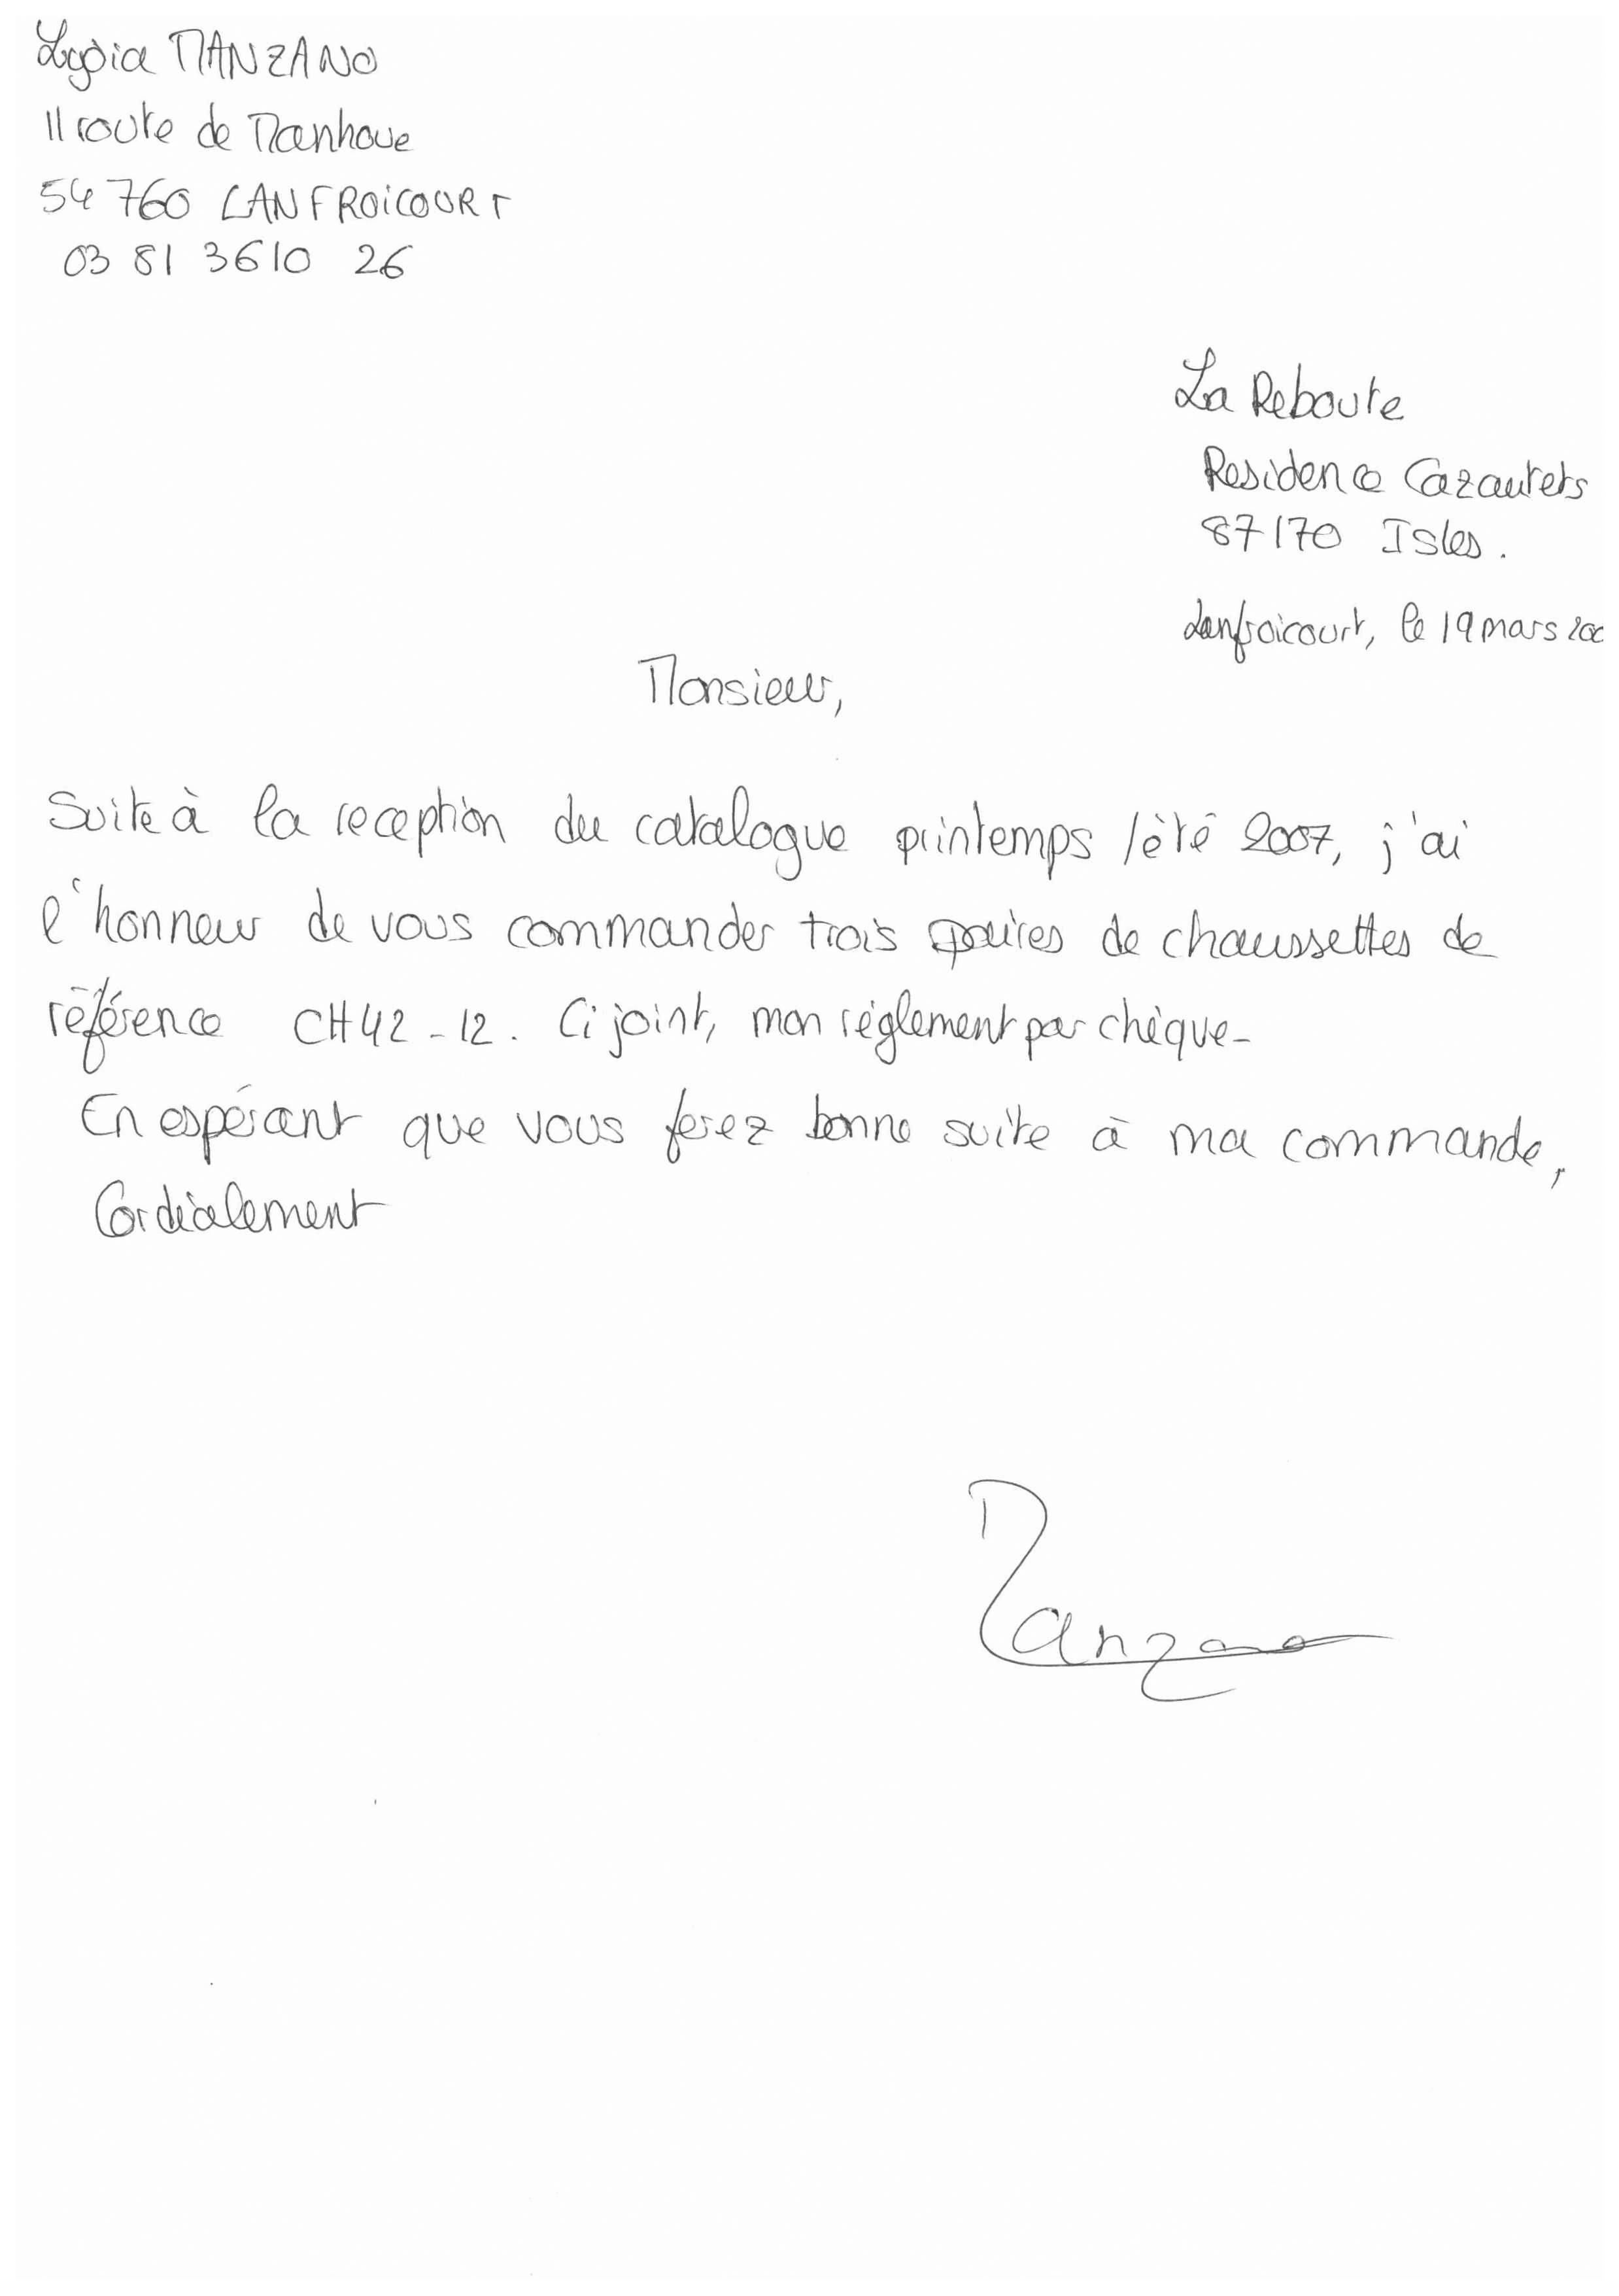 Lydia MANZANO
11 route de Manhoue
54 760 LANFROICOURT
03 81 36 10 26
La Reboute
Residence Cazautets
87170 Isles.
Lanfroicourt, le 19 mars 200
Monsieur,
Suite à la reception du catalogue printemps / été 2007, j'ai
l'honneur de vous commander trois paires de chaussettes de
référence CH42-12. Ci joint, mon réglement par chèque-
En espérant que vous ferez bonne suite à ma commande,
Cordialement
Manzano